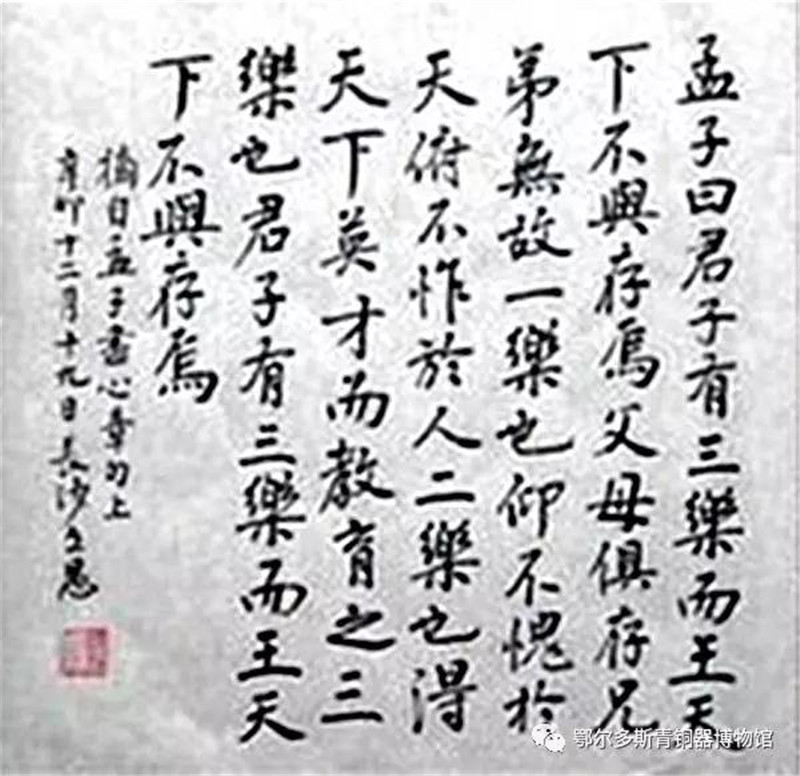 孟子曰君子有三樂而王天
下不與存焉父母俱存兄
弟無故一樂也仰不愧於
天俯不怍於人二樂也得
天下英才而教育之三
樂也君子有三樂而王天
下不與存焉
摘自孟子盡心章句上
辛卯十二月十九日長沙
鄂尔多斯青铜器博物馆